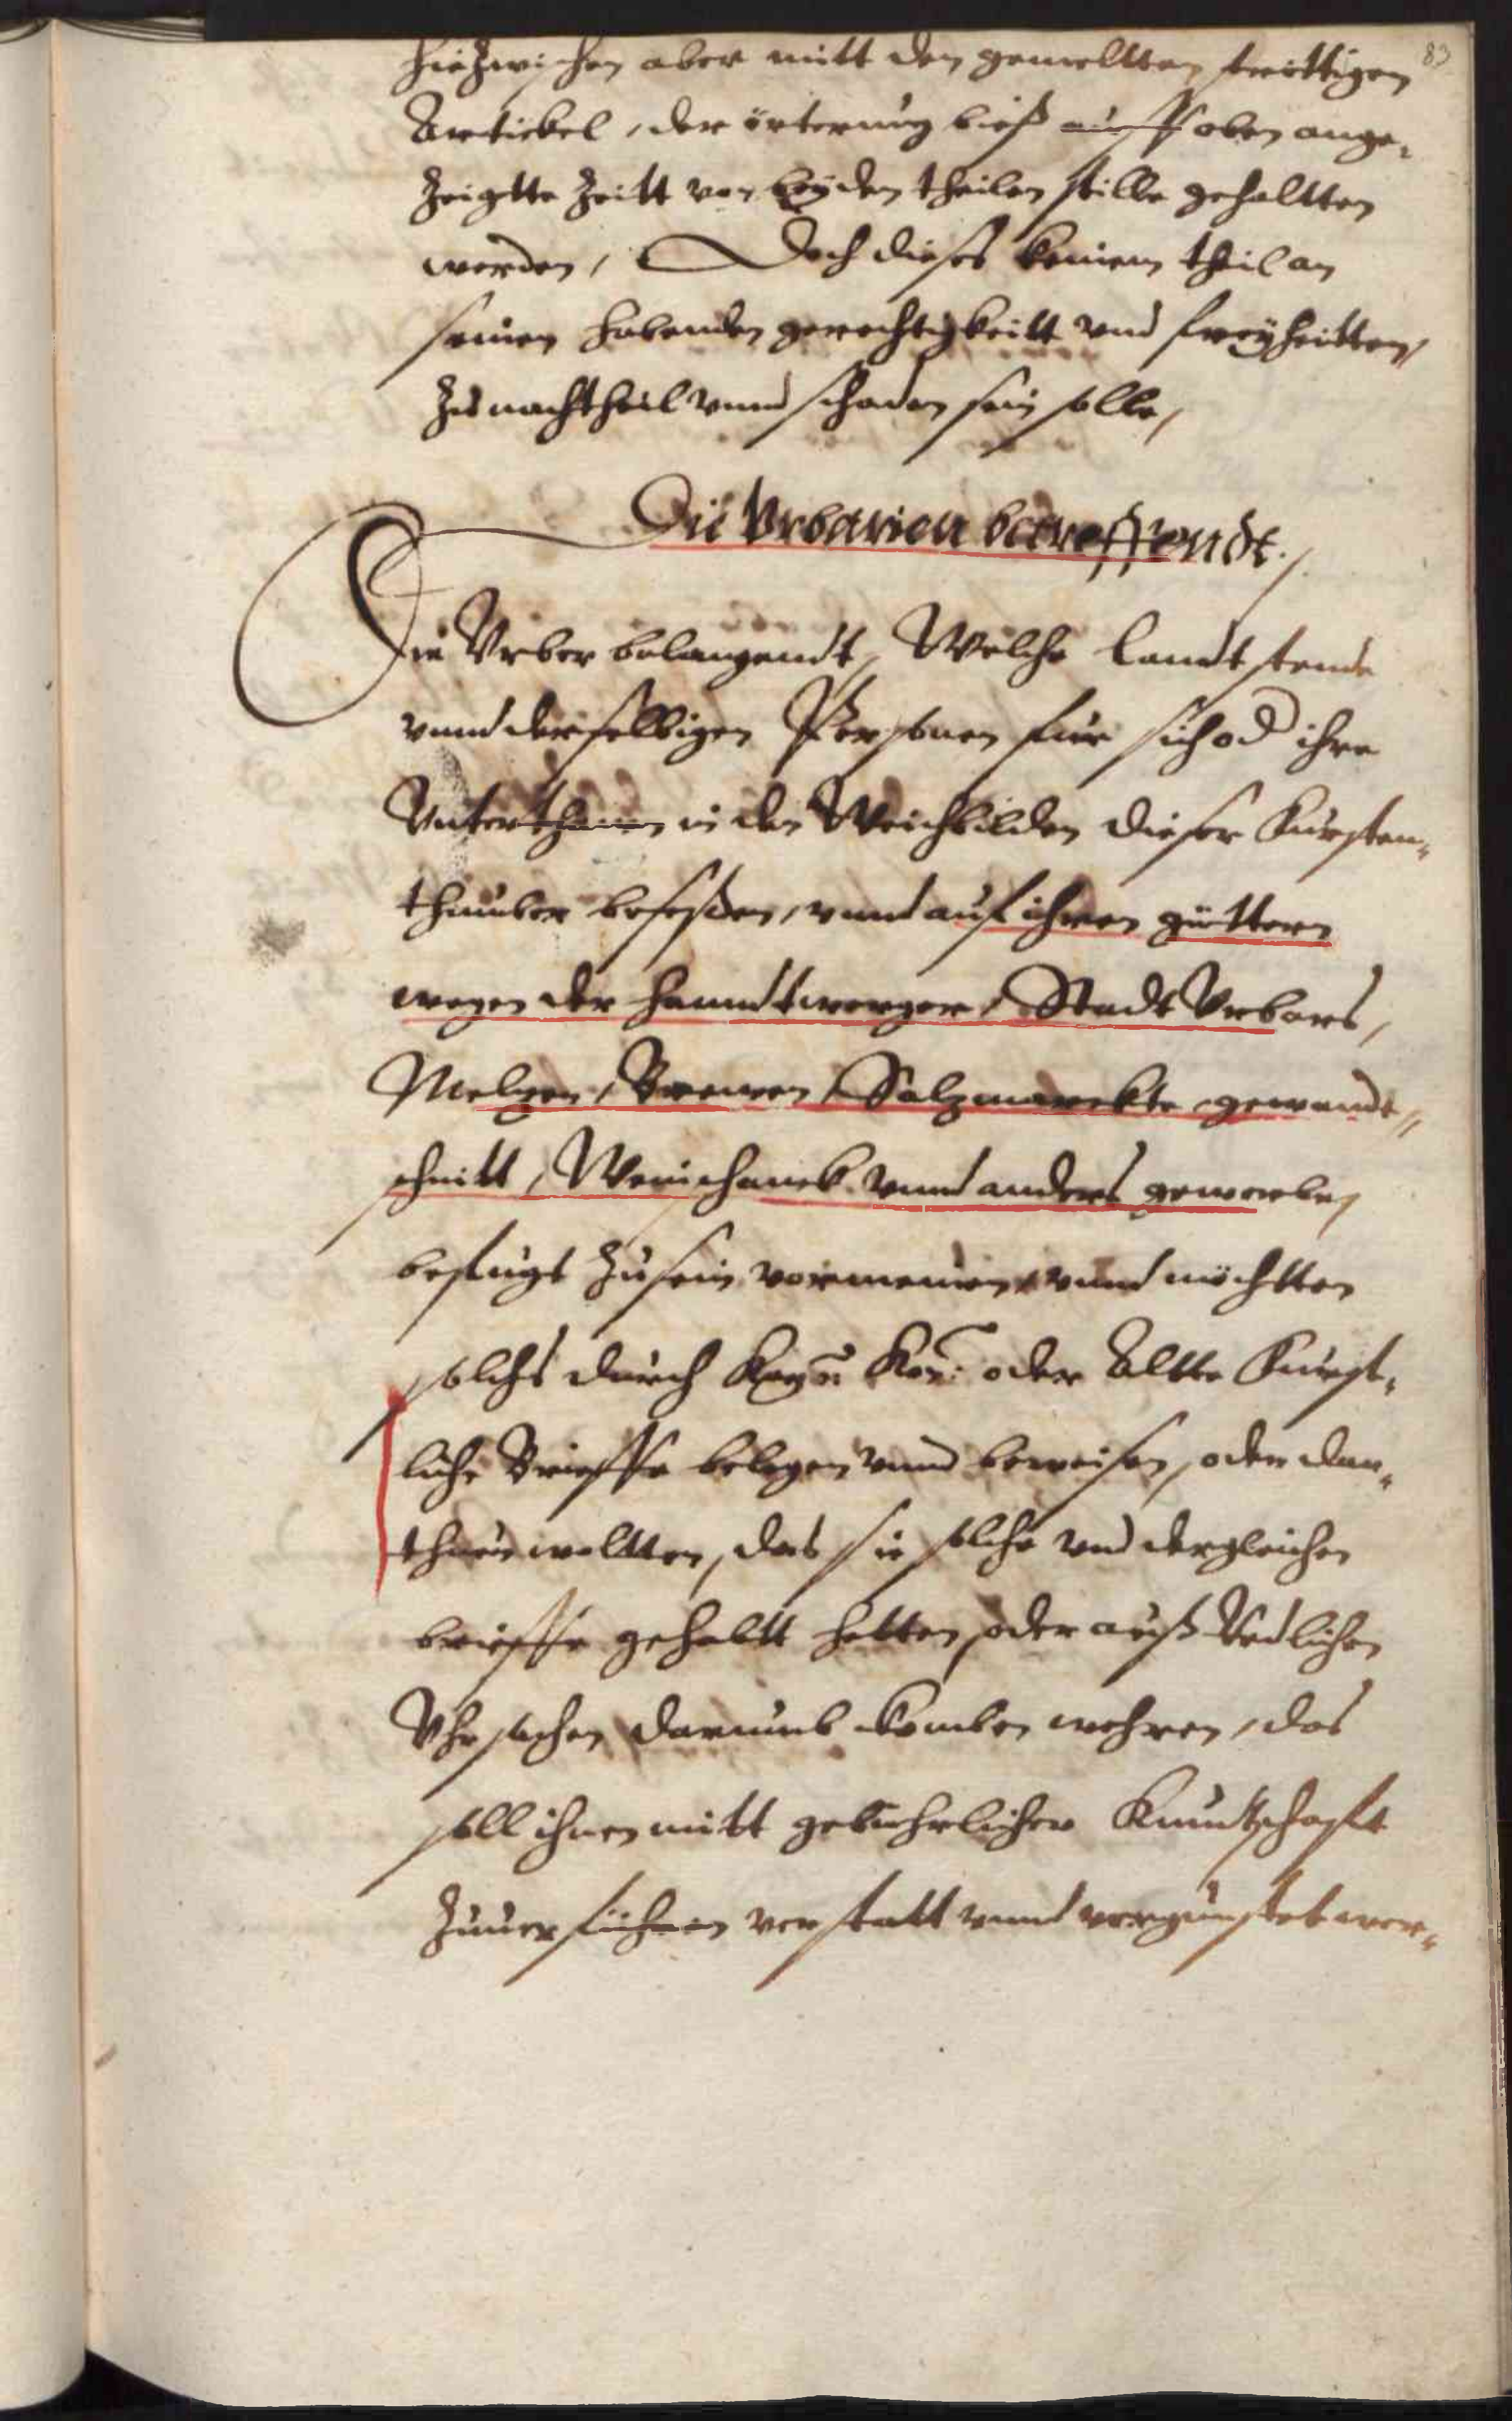 83
hiezwischen aber mitt den gemeltten streittigen
Artickel, der örterung bieß auff oben ange¬
zeigtte Zeitt von beÿden theilen stille gehaltten
werden, Doch dieses keinem theil an
seinen habenden gerechtigkeitt und freÿheitten,
zu nachtheil unnd schaden sein solle,
Die Urbarien betreffendt.
Die Urber belangendt, Welche Landtstende
unnd derselbigen Personen für sich od ihre
Unterthanen in den Weichbilden dieser Fursten¬
thumber besessen, unnd auf ihren güttern
wegen der handtwerger, Stadt Urbars,
Meltzen, Brewen, Saltzmarckte, gewandt¬
schnitt, Weinschanck unnd anders gewerbes
befugt zu sein vermeinen, unnd möchtten
solchs durch Kaÿ: Kön: oder Altte Furst¬
liche Brieffe belegen unnd beweisen, oder dar¬
thuen woltten, das sie solche und dergleichen
brieffe gehabtt hetten, oder auß Redlichen
Uhrsachen darumb komben wehren, das
soll ihnen mitt gebuhrlicher Kundtschafft
zuuerführen verstatt unnd vergunstet wer¬